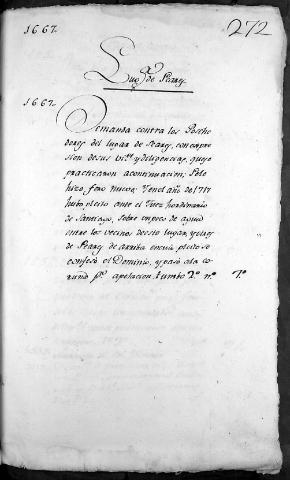 1667.
272
Lug.r de Seares
1667.
Demanda contra los Posehe
dores del lugar de Seares, con expre
sion de sus vi.s y diligencias, que se
practicaron a continuacion; Foto
hizo, foro nuevo. Y en el año de 1717
hubo pleito ante el Juez hordinario
de Santiago, sobre un poco de agua
entre los vecinos de este lugar, y el
de Seares de arriba en cuio pleito se
confesó el Dominio, y pasó a la co
ruña p.r apelacion. tumbo 2.º n.º 7.º